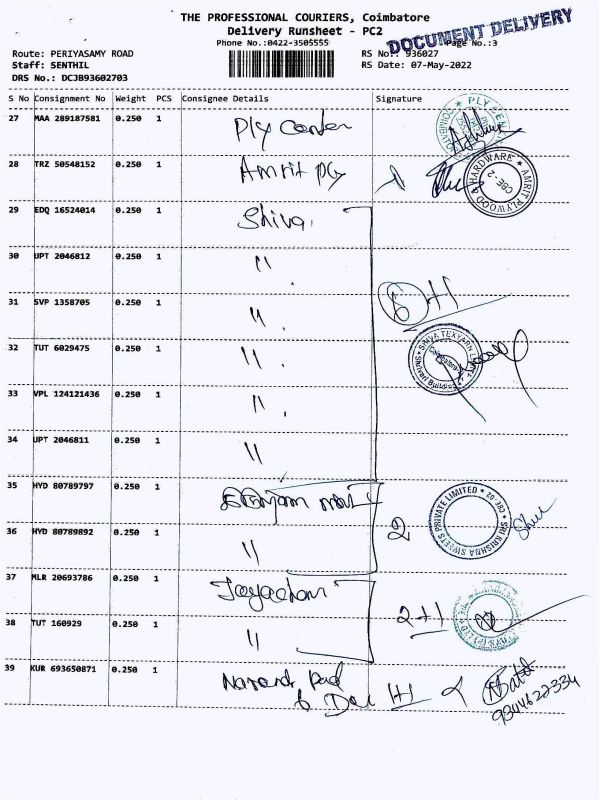 THE PROFESSIONAL COURIERS, Coimbatore
Delivery Runsheet - PC2
DOCUMENT DELIVERY
Phone No.:0422-3505555
Page No.:3
Route: PERIYASAMY ROAD
RS No.: 936027
Staff: SENTHIL
RS Date: 07-May-2022
DRS No.: DCJB93602703
S No Consignment No Weight PCS Consignee Details Signature
27 MAA 289187581 0.250 1 Ply Center
28 TRZ 50548152 0.250 1 Amrit Ply
HARDWARE * AMRIT PLYWOOD & CBE - 2
29 EDQ 16524014 0.250 1 Shiva
30 UPT 2046812 0.250 1 "
31 SVP 1358705 0.250 1 " 8+1
32 TUT 6029475 0.250 1 "
SHIVA TEXYARN
33 VPL 124121436 0.250 1 "
34 UPT 2046811 0.250 1 "
35 HYD 80789797 0.250 1
SRI KRISHNA SWEETS PRIVATE LIMITED * CBE-20 *
36 HYD 80789892 0.250 1 " 2
37 MLR 20693786 0.250 1
38 TUT 160929 0.250 1 " 2+1
39 KUR 693650871 0.250 1
9344622334